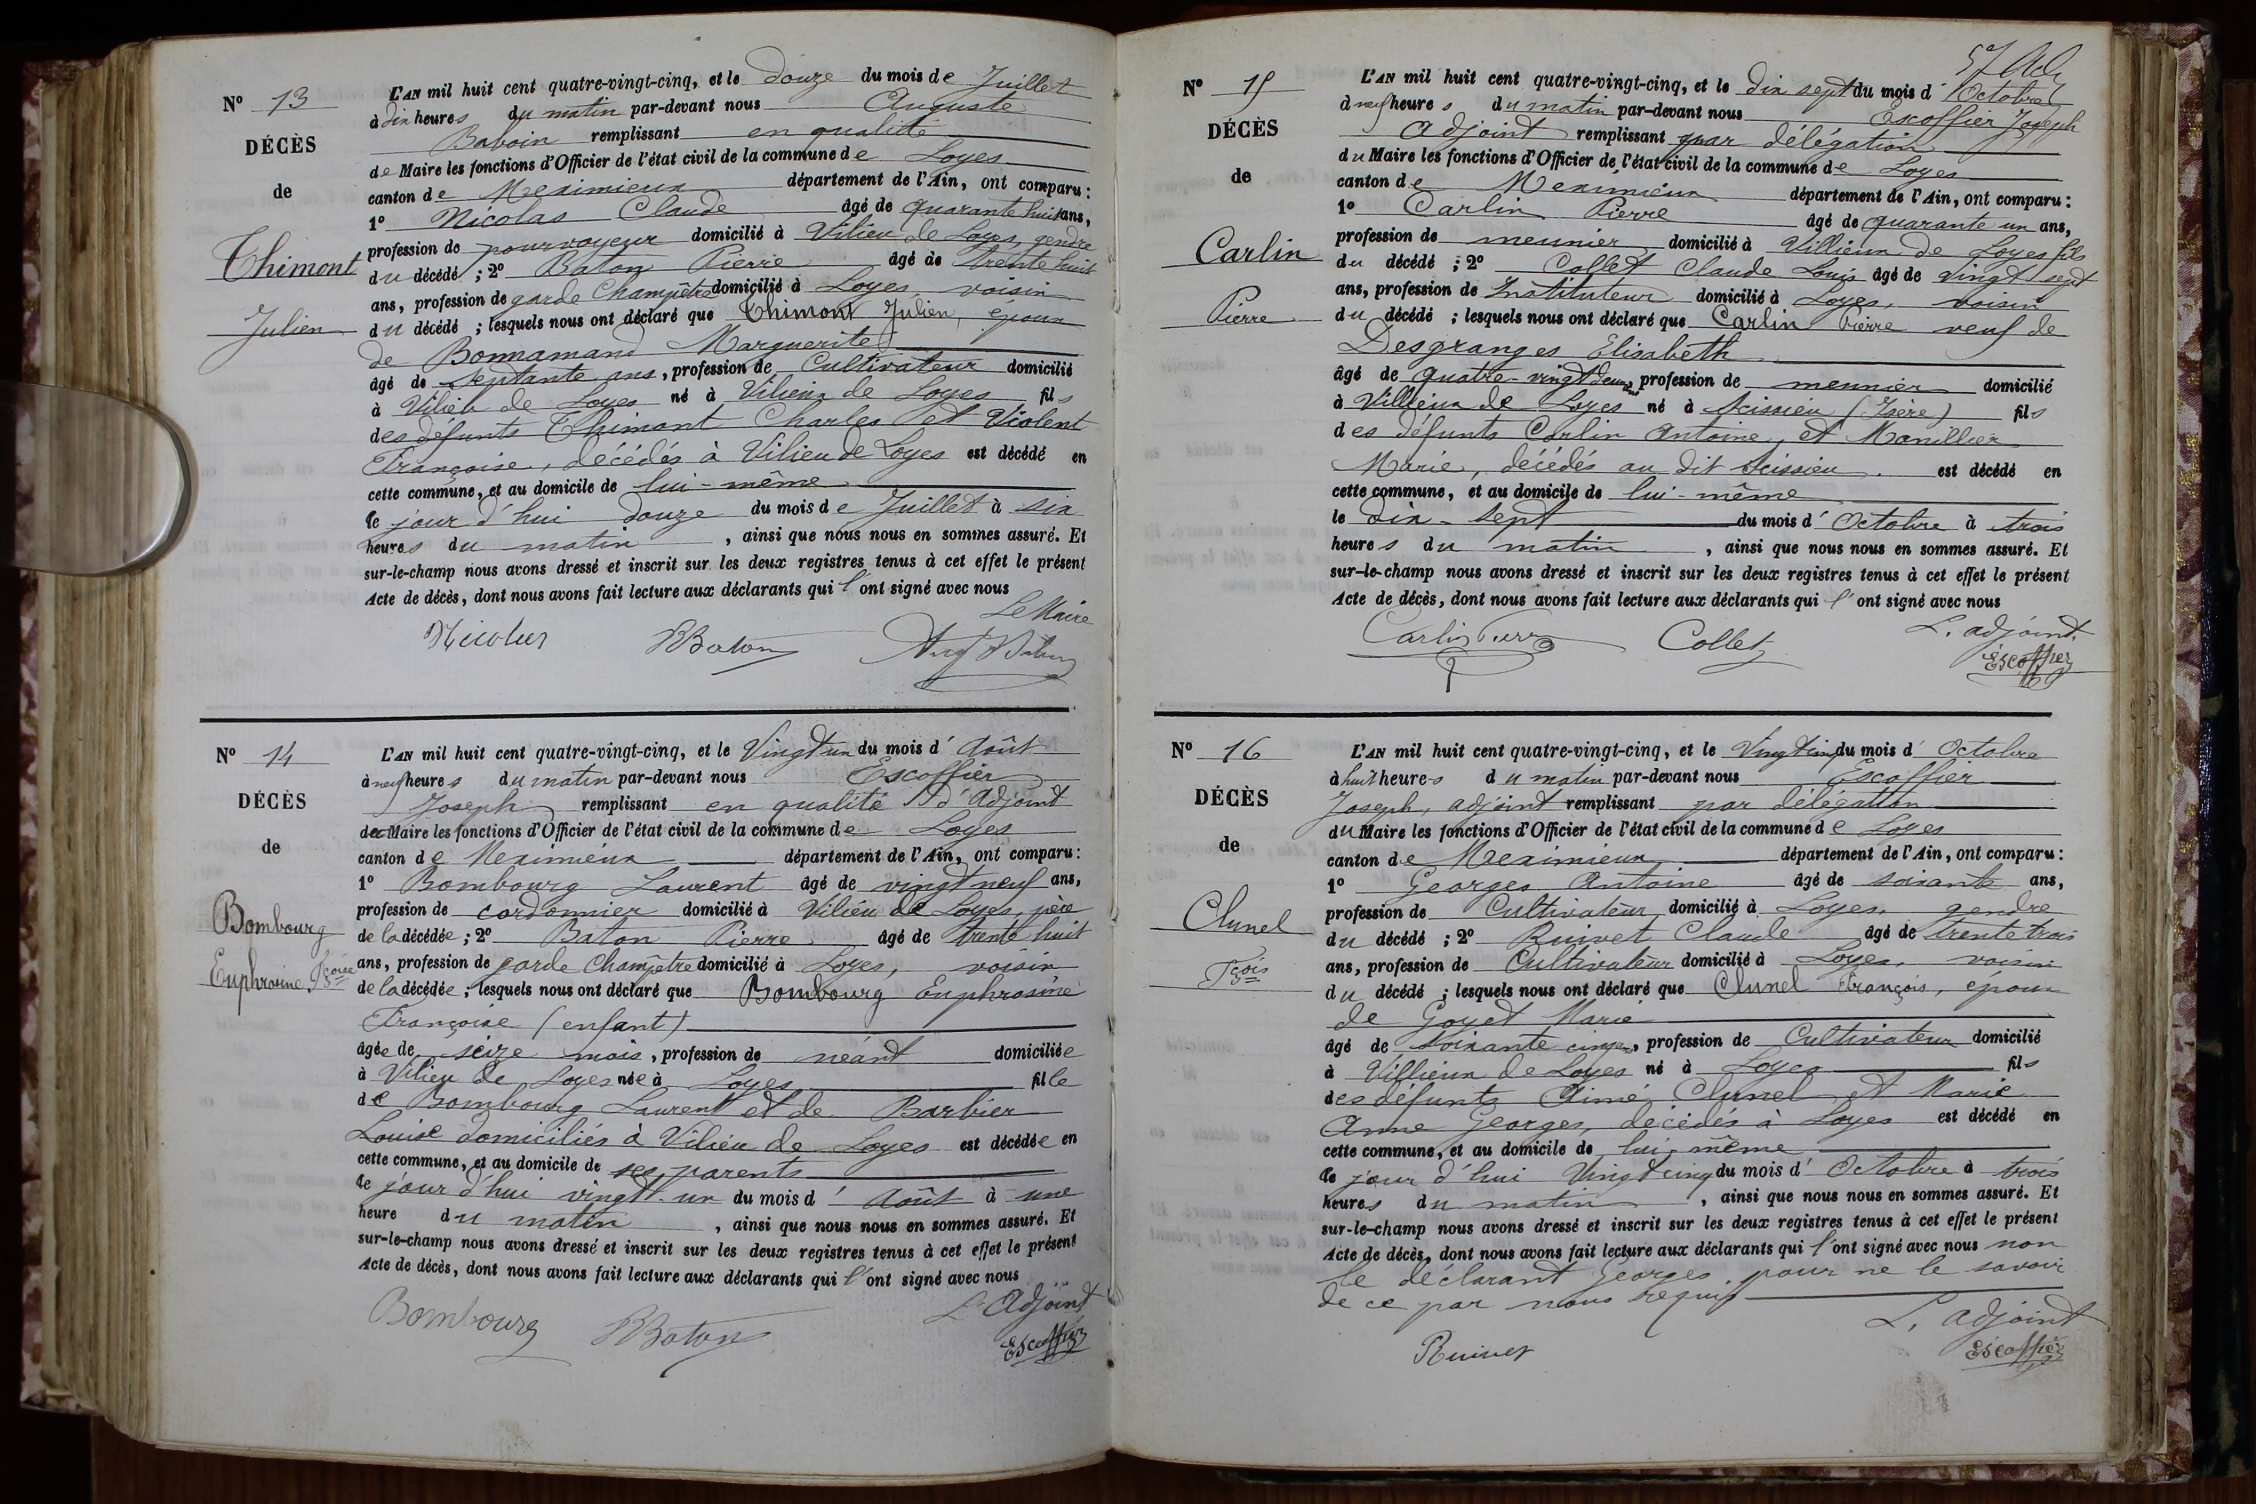 N° 13
DÉCÈS
de
Thimont
Julien
L'AN mil huit cent quatre-vingt-cinq, et le douze du mois de Juillet
à dix heures du matin par-devant nous Auguste
Baboin remplissant en qualité
de Maire les fonctions d'Officier de l'état civil de la commune de Loyes
canton de Meximieux département de l'Ain, ont comparu :
1° Nicolas Claude âgé de quarante huit ans,
profession de pourvoyeur domicilié à Vilieu de Loyes, gendre
du décédé ; 2° Baton Pierre âgé de trente huit
ans, profession de garde Champêtre domicilié à Loyes, voisin
du décédé ; lesquels nous ont déclaré que Thimont Julien, époux
de Bonnamand Marguerite
âgé de septante ans, profession de Cultivateur domicilié
à Vilieu de Loyes né à Vilieux de Loyes fils
des défunts Thimont Charles et Violent
Françoise, décédés à Vilieu de Loyes est décédé en
cette commune, et au domicile de lui-même
le jour d'hui douze du mois de Juillet à six
heures du matin, ainsi que nous nous en sommes assuré. Et
sur-le-champ nous avons dressé et inscrit sur les deux registres tenus à cet effet le présent
Acte de décès, dont nous avons fait lecture aux déclarants qui l'ont signé avec nous
Le Maire
Nicolas PBaton
N° 14
DÉCÈS
de
Bombourg
Euphrosine Fçoise
L'AN mil huit cent quatre-vingt-cinq, et le Vingt un du mois d'Août
à neuf heures du matin par-devant nous Escoffier
Joseph remplissant en qualité d'Adjoint
de Maire les fonctions d'Officier de l'état civil de la commune de Loyes
canton de Meximieux département de l'Ain, ont comparu :
1° Bombourg Laurent âgé de vingt neuf ans,
profession de cordonnier domicilié à Vilieu de Loyes, père
de la décédée ; 2° Baton Pierre âgé de trente huit
ans, profession de garde Champêtre domicilié à Loyes, voisin
de la décédée ; lesquels nous ont déclaré que Bombourg Euphrosine
Françoise (enfant)
âgée de seize mois, profession de néant domiciliée
à Vilieu de Loyes née à Loyes fille
de Bombourg Laurent et de Barbier
Louise domiciliés à Vilieu de Loyes est décédée en
cette commune, et au domicile de ses parents
le jour d'hui vingt-un du mois d'Août à une
heure du matin, ainsi que nous nous en sommes assuré. Et
sur-le-champ nous avons dressé et inscrit sur les deux registres tenus à cet effet le présent
Acte de décès, dont nous avons fait lecture aux déclarants qui l'ont signé avec nous
L'Adjoint
Bombourg PBaton Escoffier
N° 15
DÉCÈS
de
Carlin
Pierre
L'AN mil huit cent quatre-vingt-cinq, et le dix sept du mois d'Octobre
à neuf heures du matin par-devant nous Escoffier Joseph
Adjoint remplissant par délégation
du Maire les fonctions d'Officier de l'état civil de la commune de Loyes
canton de Meximieux département de l'Ain, ont comparu :
1° Carlin Pierre âgé de quarante un ans,
profession de meunier domicilié à Villieux de Loyes fils
du décédé ; 2° Collet Claude Louis âgé de vingt sept
ans, profession de Instituteur domicilié à Loyes, voisin
du décédé ; lesquels nous ont déclaré que Carlin Pierre veuf de
Desgranges Elisabeth
âgé de quatre-vingt deux ans, profession de meunier domicilié
à Villieux de Loyes né à (Isère) fils
des défunts Carlin Antoine, et Manillier
Marie, décédés au dit est décédé en
cette commune, et au domicile de lui-même
le dix-sept du mois d'Octobre à trois
heures du matin, ainsi que nous nous en sommes assuré. Et
sur-le-champ nous avons dressé et inscrit sur les deux registres tenus à cet effet le présent
Acte de décès, dont nous avons fait lecture aux déclarants qui l'ont signé avec nous
L'adjoint
Carlin Pierre Collet Escoffier
N° 16
DÉCÈS
de
Clunel
Fçois
L'AN mil huit cent quatre-vingt-cinq, et le Vingt cinq du mois d'Octobre
à huit heures du matin par-devant nous Escoffier
Joseph, adjoint remplissant par délégation
du Maire les fonctions d'Officier de l'état civil de la commune de Loyes
canton de Meximieux département de l'Ain, ont comparu :
1° Georges Antoine âgé de soixante ans,
profession de Cultivateur domicilié à Loyes, gendre
du décédé ; 2° Ruivet Claude âgé de trente trois
ans, profession de Cultivateur domicilié à Loyes, voisin
du décédé ; lesquels nous ont déclaré que Clunel François, époux
de Goyet Marie
âgé de soixante cinq ans, profession de Cultivateur domicilié
à Villieux de Loyes né à Loyes fils
des défunts Aimé Clunel et Marie
Anne Georges, décédés à Loyes est décédé en
cette commune, et au domicile de lui-même
le jour d'hui Vingt cinq du mois d'Octobre à trois
heures du matin, ainsi que nous nous en sommes assuré. Et
sur-le-champ nous avons dressé et inscrit sur les deux registres tenus à cet effet le présent
Acte de décès, dont nous avons fait lecture aux déclarants qui l'ont signé avec nous non
le déclarant Georges, pour ne le savoir
de ce par nous requis
L'adjoint
Ruivet Escoffier